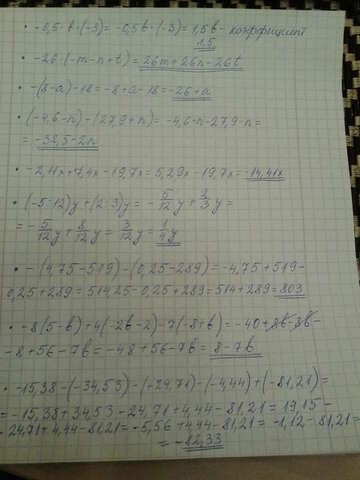 • -0,5·b·(-3)= -0,5b·(-3)= 1,5b - коэффициент
1,5
• -26·(-m-n+t)= 26m+26n-26t
• -(8-a)-18=-8+a-18=-26+a
• (-4,6-n)-(27,9+n)= -4,6-n-27,9-n=
= -32,5-2n
• -2,11x+7,4x-19,7x= 5,29x-19,7x=-14,41x
• (-5:12)y+(2:3)y= -5/12y+2/3y=
= -5/12y+8/12y= 3/12y= 1/4y
• -(4,75-519)-(0,25-289)=-4,75+519-
0,25+289= 514,25-0,25+289=514+289=803
• -8(5-b)+4(-2b-2)-7(-8+b)=-40+8b-8b-
-8+56-7b=-48+56-7b= 8-7b
• -15,38-(-34,53)-(+24,71)-(-4,44)+(-81,21)=
= -15,38+34,53-24,71+4,44-81,21= 19,15-
24,71+4,44-81,21=-5,56+4,44-81,21= -1,12-81,21=
= -82,33